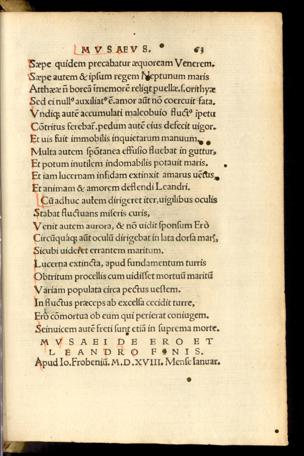 MVSAEVS. 63
Sæpe quidem precabatur æquoream Venerem.
Sæpe autem & ipsum regem Neptunum maris
Atthææ ñ boreã ĩmemorẽ relíqt puellæ.s.orithyæ
Sed ei null⁹ auxiliat⁹ ẽ.amor aũt nõ coercuit fata.
Vndiq; autẽ accumulati maleobuio fluct⁹ ipetu
Cõtritus ferebat̃.pedum autẽ eius defecit uigor.
Et uis fuit immobilis inquietarum manuum.
Multa autem spõtanea effusio fluebat in guttur,
Et potum inutilem indomabilis potauit maris.
Et iam lucernam infidam extinxit amarus uẽtus,
Et animam & amorem deflendi Leandri.
Cũ adhuc autem dirigeret iter, uigilibus oculis
Stabat fluctuans miseris curis,
Venit autem aurora, & nõ uidit sponsum Erò
Circũquaq; aũt oculũ dirigebat in lata dorsa maris,
Sicubi uideret errantem maritum.
Lucerna extincta, apud fundamentum turris
Obtritum procellis cum uidisset mortuũ maritũ
Variam populata circa pectus uestem.
In fluctus præceps ab excelsa cecidit turre,
Erò cõmortua ob eum qui perierat coniugem.
Seinuicem autẽ freti sunt etiã in suprema morte.
MVSAEI DE ERO ET
LEANDRO FINIS.
Apud Io. Frobeniũ. M.D.XVIII. Mense Ianuar.